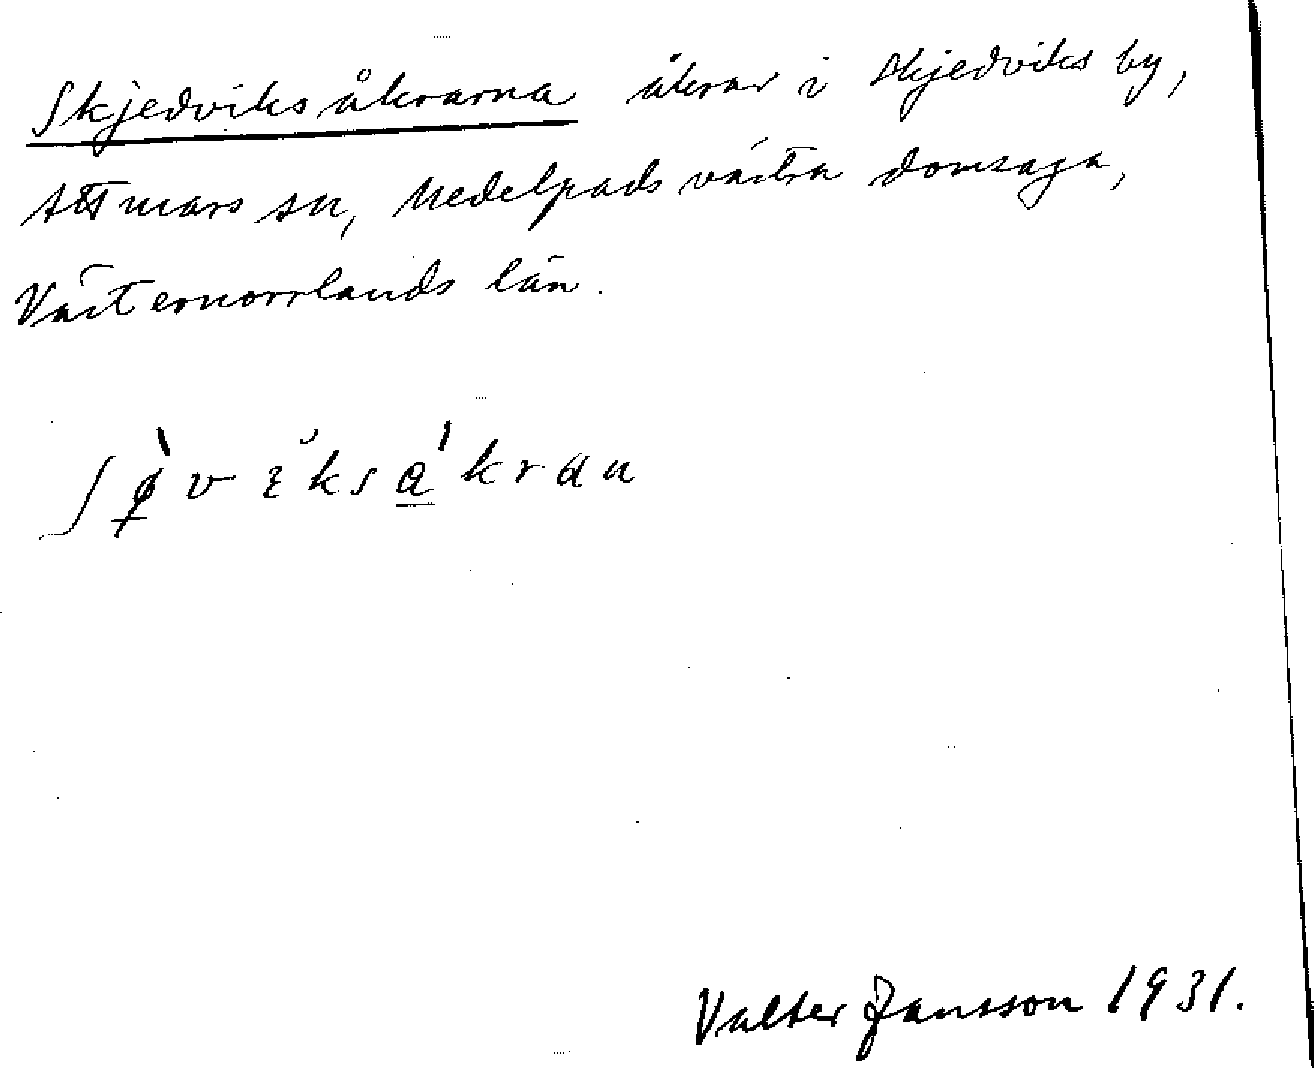 Skjedviksåkrarna åkrar i Skjedviks by,
Attmars sn, Medelpads västra domsaga,
Västernorrlands län.
Valter Jansson 1931.